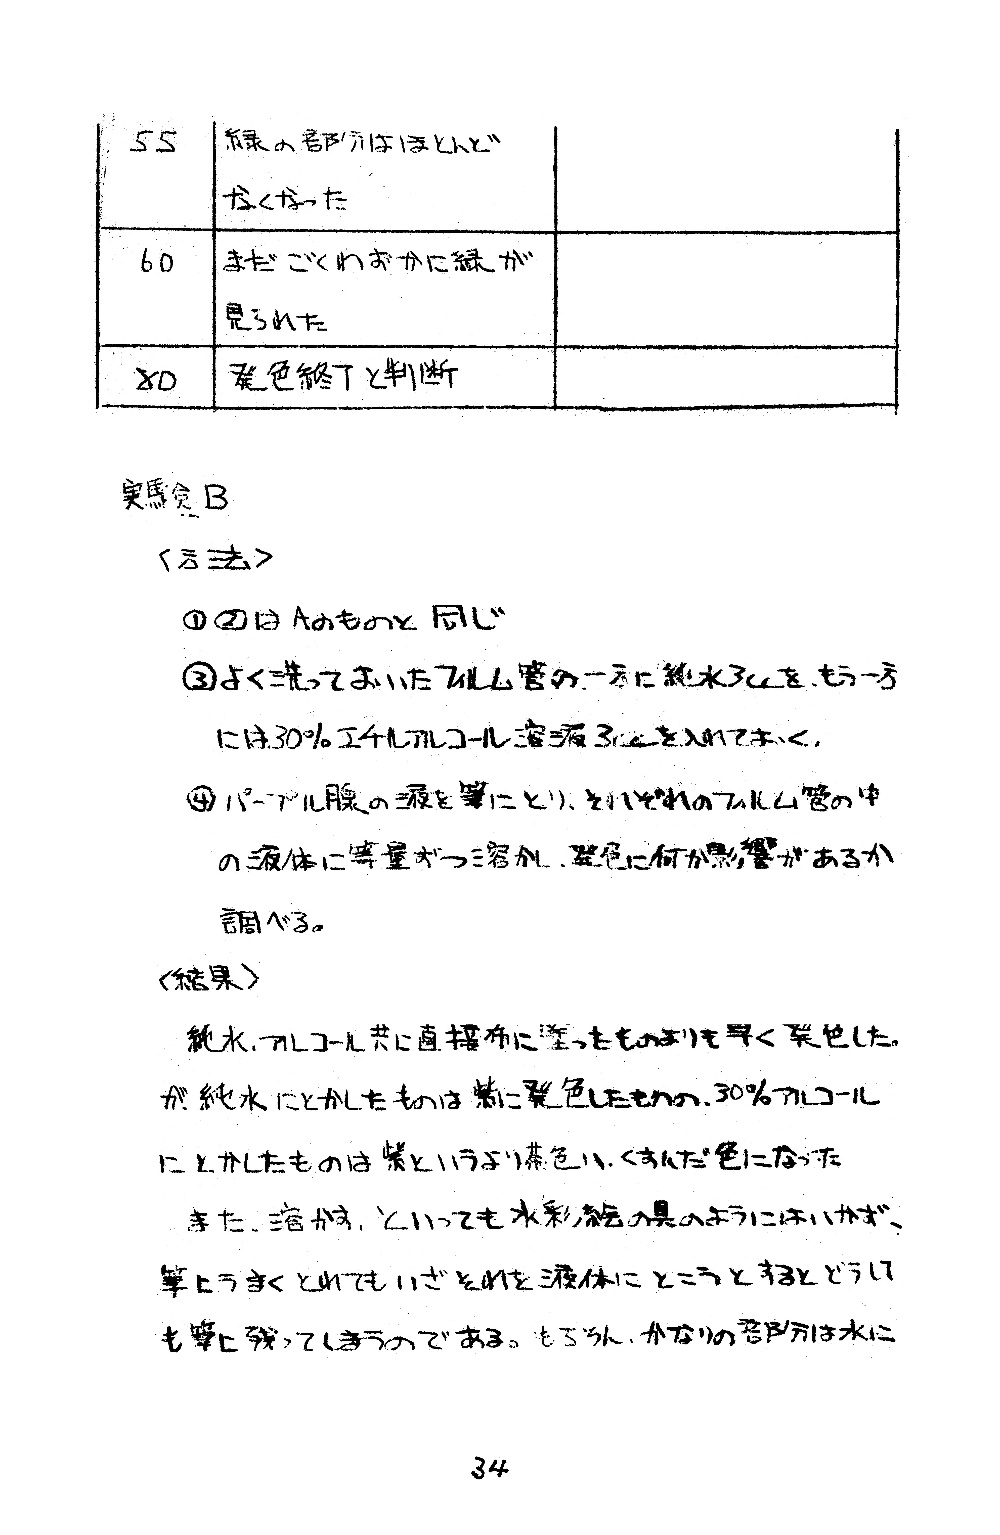 55 緑の部分はほとんど
なくなった
60 まだごくわずかに緑が
見られた
80 発色終了と判断
実験B
〈方法〉
①②はAのものと同じ
③よく洗っておいたフィルム管の一方に純水3ccを、もう一方
には30%エチルアルコール溶液3ccを入れておく。
④パープル腺の液を筆にとり、それぞれのフィルム管の中
の液体に等量ずつ溶かし、発色に何か影響があるか
調べる。
〈結果〉
純水、アルコール共に直接布に塗ったものよりも早く発色した。
が、純水にとかしたものは紫に発色したものの、30%アルコール
にとかしたものは紫というより茶色い、くすんだ色になった
また、溶かす、といっても水彩絵の具のようにはいかず、
筆にうまくとれてもいざそれを液体にとこうとするとどうして
も筆に残ってしまうのである。もちろん、かなりの部分は水に
34